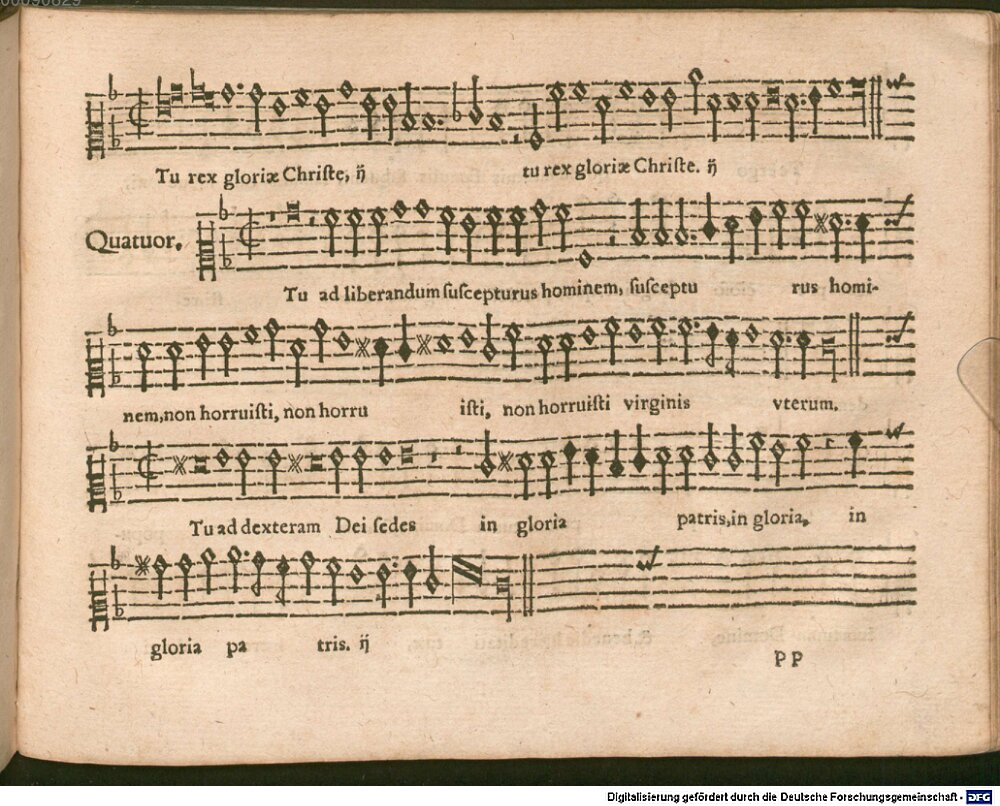 00090829
Tu rex gloriæ Chriſte, ij̈ tu rex gloriæ Chriſte. ij̈
Quatuor.
Tu ad liberandum ſuſcepturus hominem, ſuſceptu rus homi-
nem, non horruiſti, non horru iſti, non horruiſti virginis vterum.
Tu ad dexteram Dei ſedes in gloria patris, in gloria, in
gloria pa tris. ij̈
PP
Digitalisierung gefördert durch die Deutsche Forschungsgemeinschaft - DFG